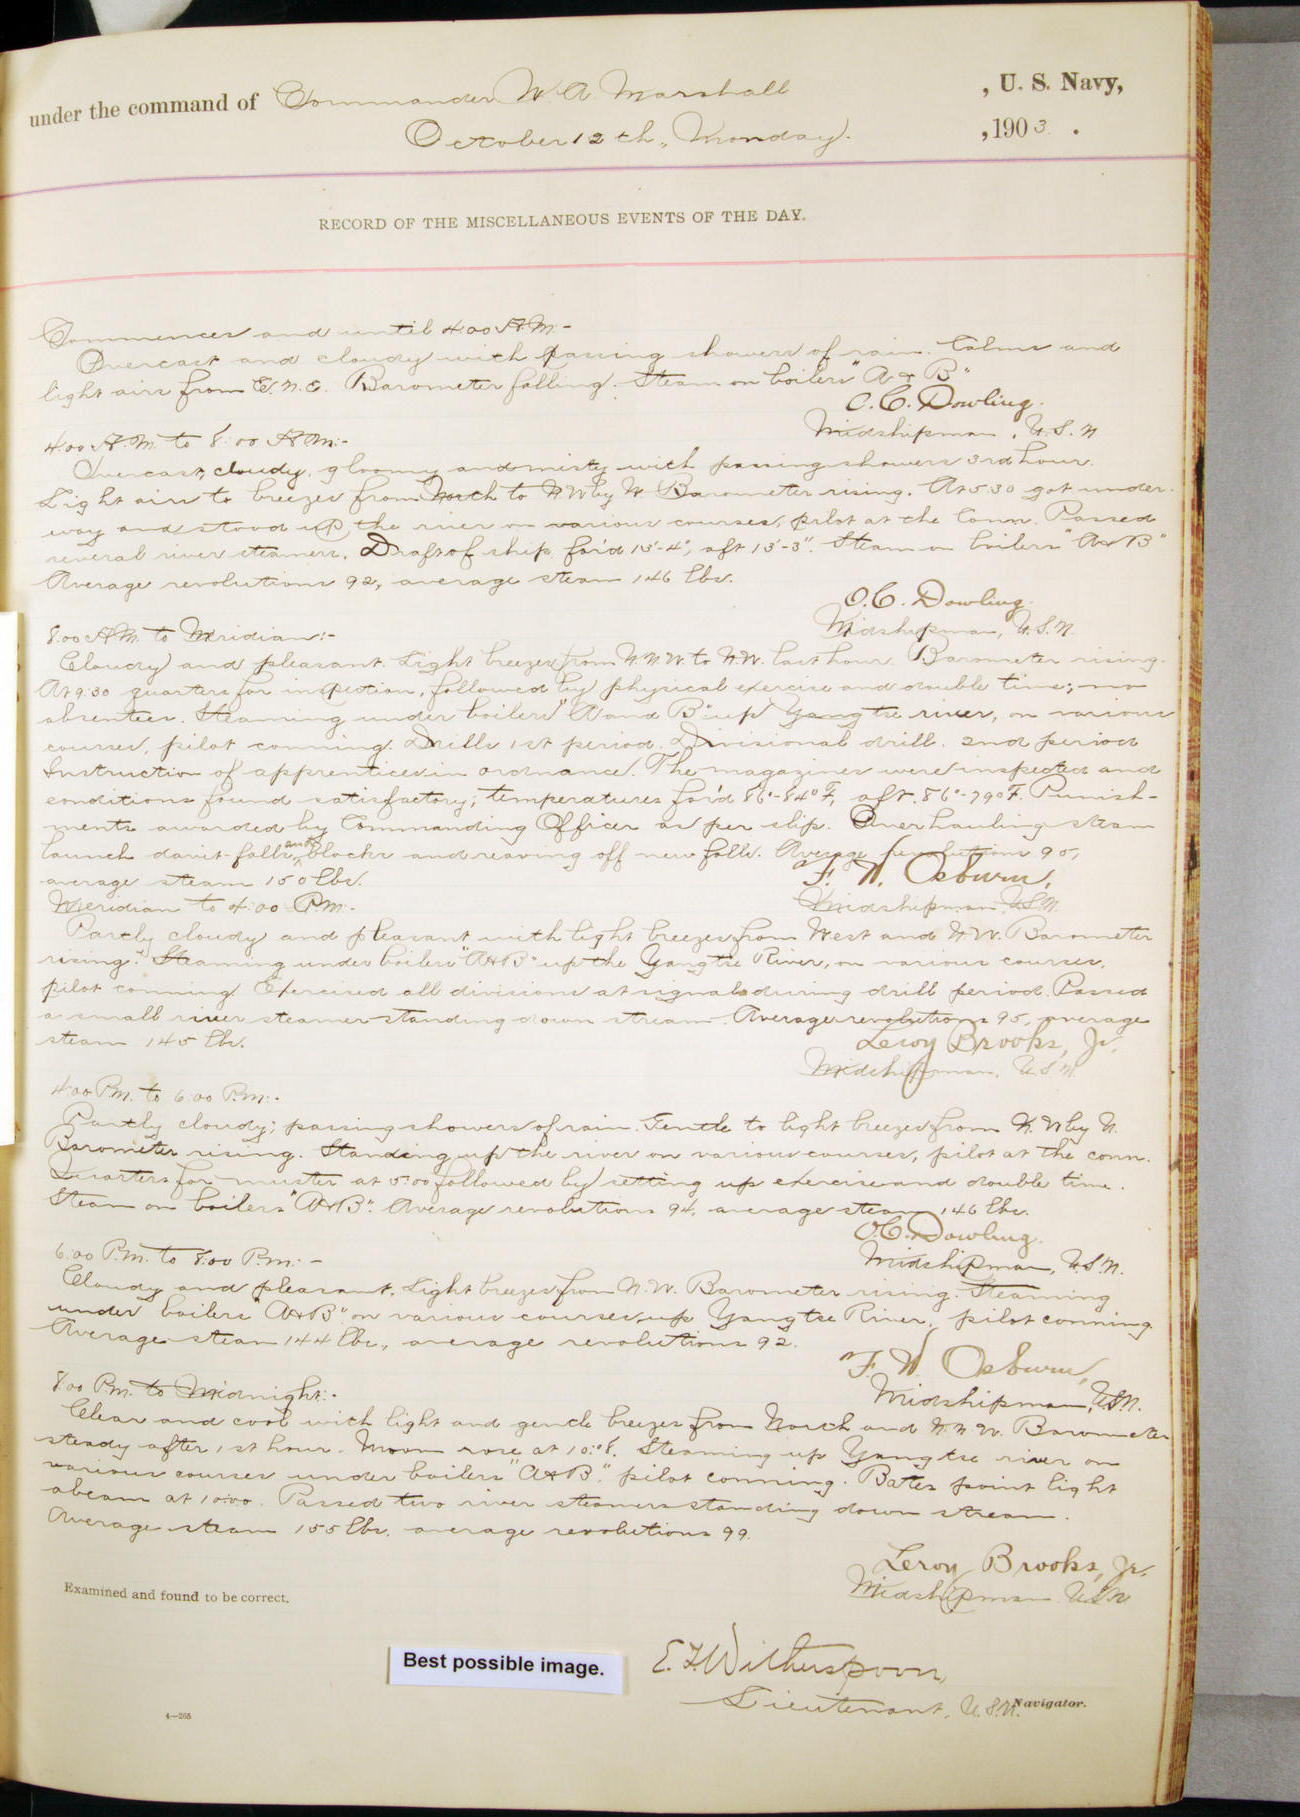 under the command of Commander W. A. Marshall , U. S. Navy,
October 12th, Monday. , 1903.
RECORD OF THE MISCELLANEOUS EVENTS OF THE DAY.
Commences and until 4:00 A.M:-
Overcast and cloudy with passing showers of rain. Calms and
light airs from E.N.E. Barometer falling. Steam on boilers "A & B"
O. C. Dowling.
Midshipman, U.S.N
4:00 A.M. to 8:00 A.M:-
Overcast, cloudy, gloomy and misty with passing showers 3rd hour.
Light airs to breezes from North to N.W by W. Barometer rising. At 5:30 got under
way and stood up the river on various courses, pilot at the Conn. Passed
several river steamers. Draft of ship, for'd 13'-4", aft 13'-3". Steam on boilers "A & B"
Average revolutions 92, average steam 146 lbs.
O. C. Dowling.
Midshipman, U.S.N.
8:00 A.M. to Meridian:-
Cloudy and pleasant. Light breezes from N.N.W. to N.W. last hour. Barometer rising.
At 9:30 quarters for inspection, followed by physical exercise and double time; no
absentees. Steaming under boilers "A and B" up Yangtse river, on various
courses, pilot conning. Drills 1st period. Divisional drill. 2nd period
Instruction of apprentices in ordnance. The magazines were inspected and
conditions found satisfactory; temperatures for'd 86°-84° F, aft. 86°-79° F. Punish-
ments awarded by Commanding Officer as per slip. Overhauling steam
launch davit-falls and blocks and reaving off new falls. Average revolutions 95,
average steam 150 lbs.
F. W. Osburn,
Midshipman U.S.N.
Meridian to 4:00 P.M:-
Partly cloudy and pleasant with light breezes from West and N.W. Barometer
rising. Steaming under boilers "A & B" up the Yangtse River, on various courses,
pilot conning. Exercised all divisions at signals during drill period. Passed
a small river steamer standing down stream. Average revolutions 95, average
steam 145 lbs.
Leroy Brooks, Jr.
Midshipman, U.S.N.
4:00 P.M. to 6:00 P.M:-
Partly cloudy; passing showers of rain. Gentle to light breezes from N.W by N.
Barometer rising. Standing up the river on various courses, pilot at the conn.
Quarters for muster at 5:00 followed by setting up exercise and double time.
Steam on boilers "A & B". Average revolutions 94, average steam 146 lbs.
O. C. Dowling.
Midshipman, U.S.N.
6:00 P.M. to 8:00 P.M:-
Cloudy and pleasant. Light breezes from N.W. Barometer rising. Steaming
under boilers "A & B" on various courses, up Yangtse River, pilot conning.
Average steam 144 lbs, average revolutions 92.
F. W. Osburn,
Midshipman, U.S.N.
8:00 P.M. to Midnight:-
Clear and cool with light and gentle breezes from North and N.N.W. Barometer
steady after 1st hour. Moon rose at 10:08. Steaming up Yangtse river on
various courses under boilers "A & B", pilot conning. Bates point light
abeam at 10:00. Passed two river steamers standing down stream.
Average steam 155 lbs, average revolutions 99.
Leroy Brooks, Jr.
Midshipman U.S.N
Examined and found to be correct.
Best possible image.
E. Witherspoon,
Lieutenant, U.S.N. Navigator.
4—265